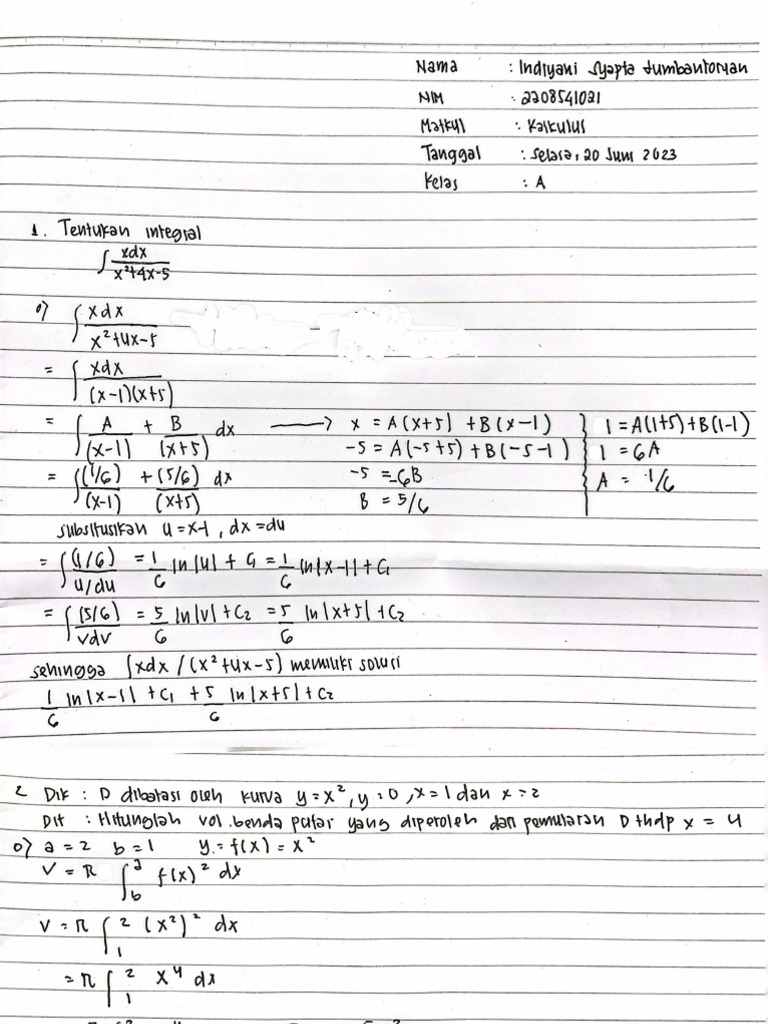 Nama : Indryani Syapta Lumbantoruan
NIM : 2208541021
Matkul : Kalkulus
Tanggal : Selasa, 20 Juni 2023
Kelas : A
1. Tentukan integral
∫ xdx / x²+4x-5
o) ∫ xdx / x²+4x-5
= ∫ xdx / (x-1)(x+5)
= ∫ A/(x-1) + B/(x+5) dx → x = A(x+5) + B(x-1) } 1 = A(1+5)+B(1-1)
-5 = A(-5+5) + B(-5-1) } 1 = 6A
= ∫ (1/6)/(x-1) + (5/6)/(x+5) dx -5 = -6B } A = 1/6
B = 5/6
substitusikan u = x-1, dx = du
= ∫ (1/6)/u/du = 1/6 ln|u| + C₁ = 1/6 ln|x-1| + C₁
= ∫ (5/6)/vdv = 5/6 ln|v| + C₂ = 5/6 ln|x+5| + C₂
sehingga ∫xdx / (x²+4x-5) memiliki solusi
1/6 ln|x-1| + C₁ + 5/6 ln|x+5| + C₂
2 Dik : D dibatasi oleh kurva y=x², y=0, x=1 dan x=2
Dit : Hitunglah vol.benda putar yang diperoleh dari pemutaran D thdp x = 4
o) a = 2 b = 1 y = f(x) = x²
V = π ∫_b^a f(x)² dx
V = π ∫_1^2 (x²)² dx
= π ∫_1^2 x⁴ dx